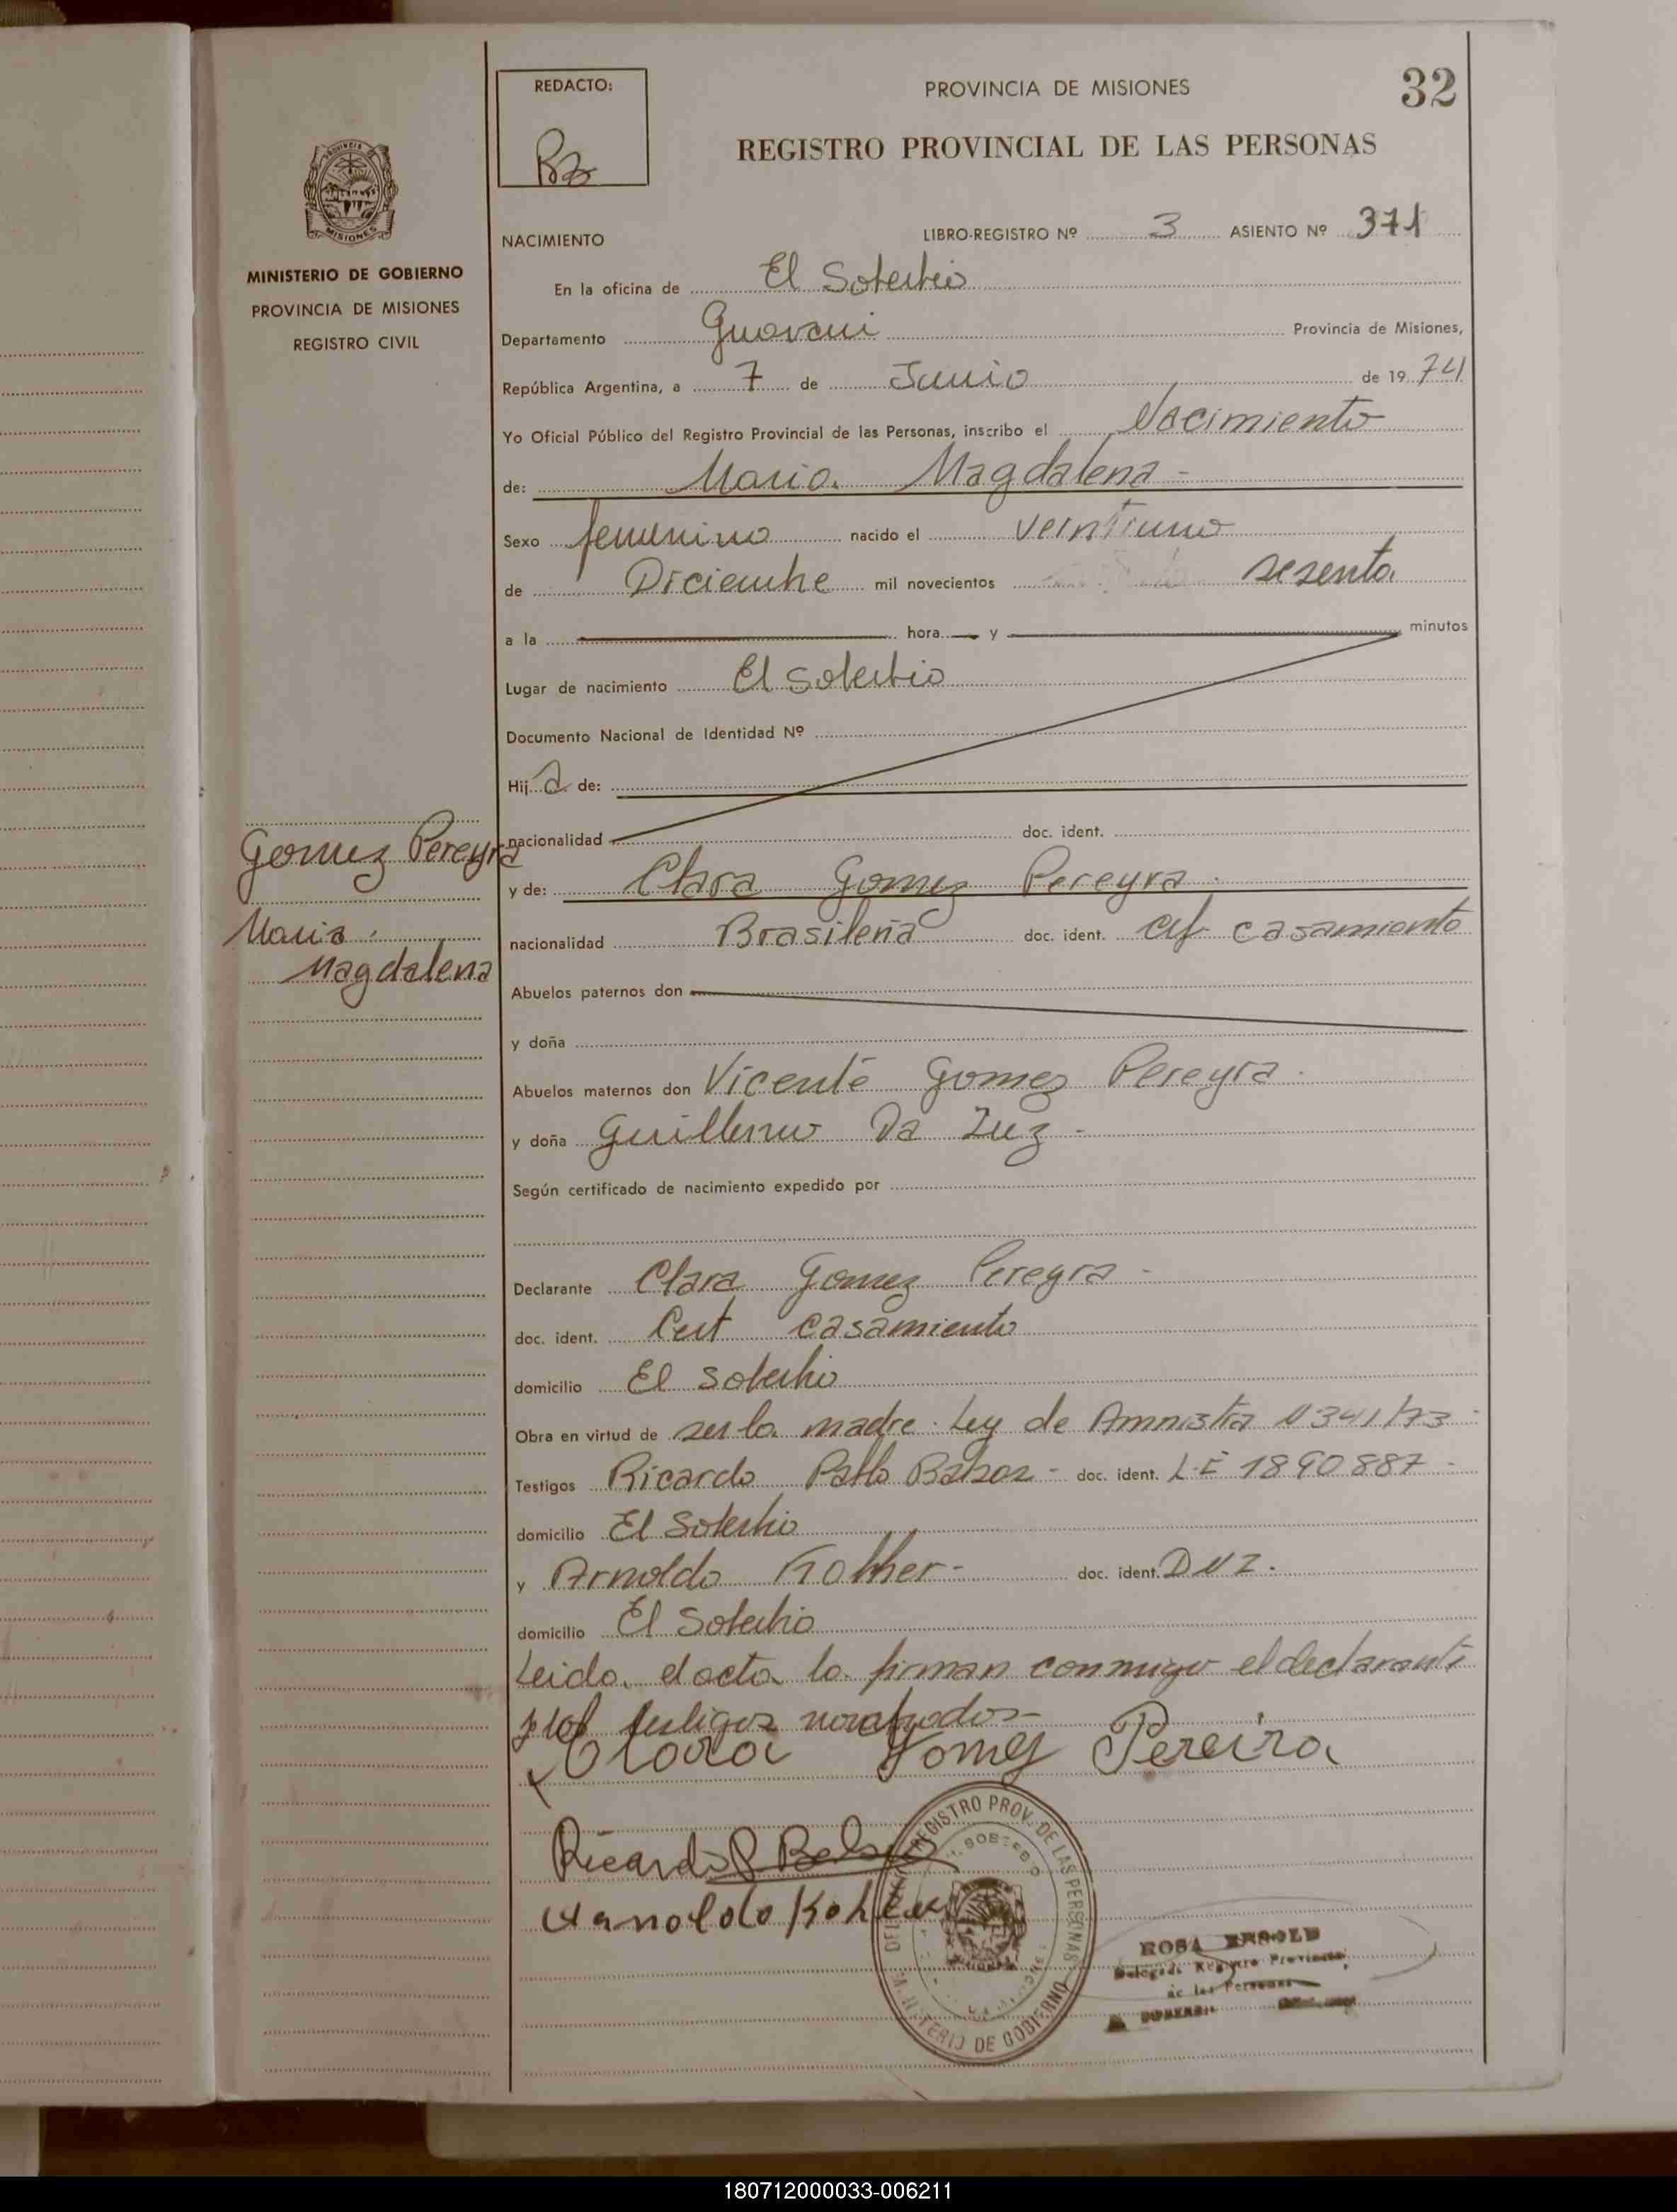 REDACTO:
PROVINCIA DE MISIONES
32
REGISTRO PROVINCIAL DE LAS PERSONAS
PROVINCIA DE
MISIONES
MINISTERIO DE GOBIERNO
PROVINCIA DE MISIONES
REGISTRO CIVIL
NACIMIENTO
LIBRO-REGISTRO Nº 3 ASIENTO Nº 371
En la oficina de El Soberbio
Departamento Guarani Provincia de Misiones,
República Argentina, a 7 de Junio de 1974
Yo Oficial Público del Registro Provincial de las Personas, inscribo el Nacimiento
de: Maria Magdalena -
Sexo femenino nacido el veintiuno
de Diciembre mil novecientos sesenta
a la hora y minutos
Lugar de nacimiento El Soberbio
Documento Nacional de Identidad Nº
Hija de:
nacionalidad doc. ident.
Gomez Pereyra
Maria
Magdalena
y de: Clara Gomez Pereyra
nacionalidad Brasileña doc. ident. casamiento
Abuelos paternos don
y doña
Abuelos maternos don Vicente Gomez Pereyra
y doña Da Luz -
Según certificado de nacimiento expedido por
Declarante Clara Gomez Pereyra -
doc. ident. Cert casamiento
domicilio El Soberbio
Obra en virtud de ser la madre. Ley de Amnistia N 341/73 -
Testigos Ricardo Pablo doc. ident. L.E 1890887 -
domicilio El Soberbio
y Arnoldo Kohler - doc. ident. DNI.
domicilio El Soberbio
Leida el acta la firman conmigo el declarante
y los testigos nombrados -
Clara Gomez Pereira
Ricardo P
Arnoldo Kohler
REGISTRO PROV. DE LAS PERSONAS
SOBERBIO
MINISTERIO DE GOBIERNO
ROSA
Registro Provincial
de las Personas
180712000033-006211